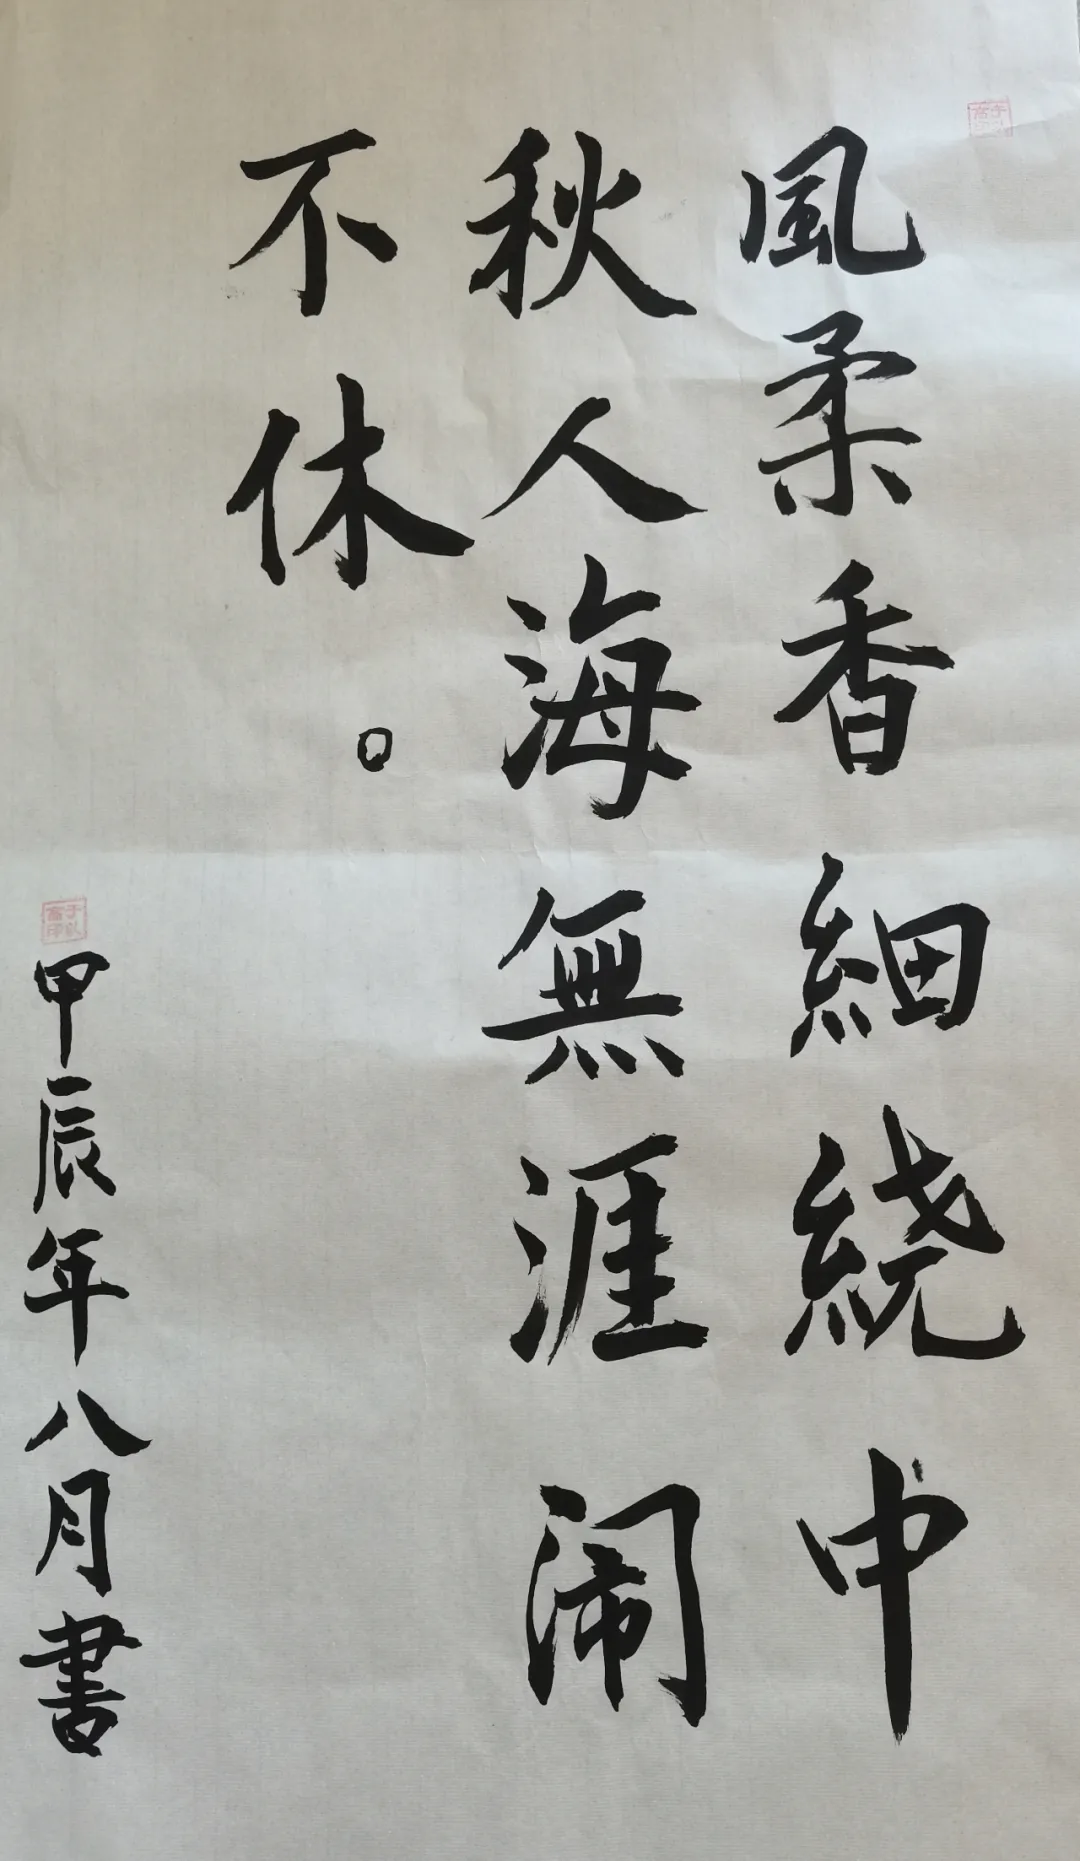 風柔香細繞中
秋人海無涯闹
不休。
甲辰年八月書